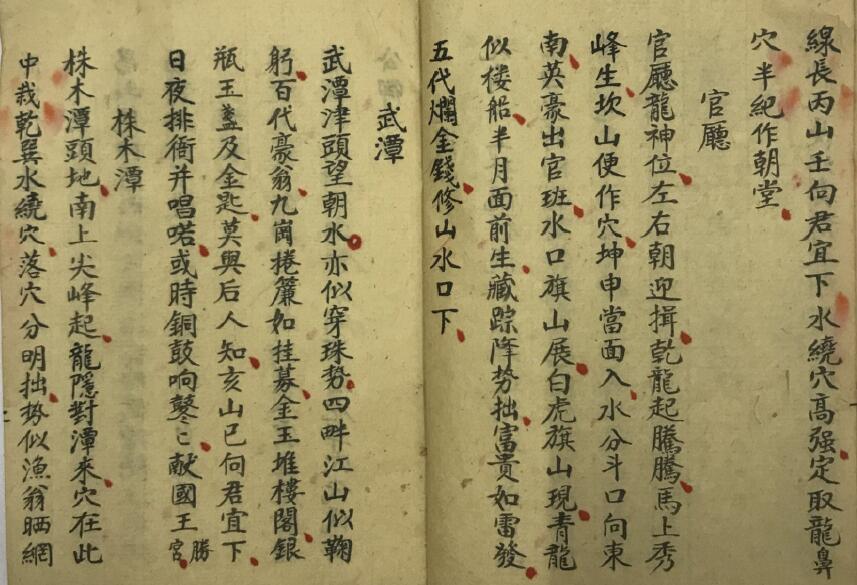 線長丙山壬向君宜下水繞穴高强定取龍鼻
穴半紀作朝堂
官廳
官廳龍神位左右朝迎揖乾龍起騰騰馬上秀
峰生坎山便作穴坤申當面入水分斗口向東
南英豪出官班水口旗山展白虎旗山現青龍
似楼船半月面前生藏踪降势拙富貴如雷發
五代爛金錢修山水口下
武潭
武潭津頭望朝水亦似穿珠势四畔江山似鞠
躬百代豪翁九崗捲簾如挂募金玉堆樓閣銀
瓶玉盞及金匙莫與后人知亥山巳向君宜下
日夜排衙并唱喏或時銅鼓响鼕〻献國王勝宫
株木潭
株木潭頭地南上尖峰起龍隠對潭來穴在此
中栽乾巽水繞穴落穴分明拙势似漁翁晒網